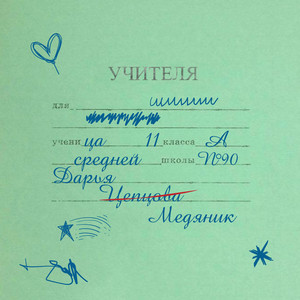 УЧИТЕЛЯ
для шишиши
учени ца 11 класса А
средней школы №90
Дарья
Цепцова
Медяник